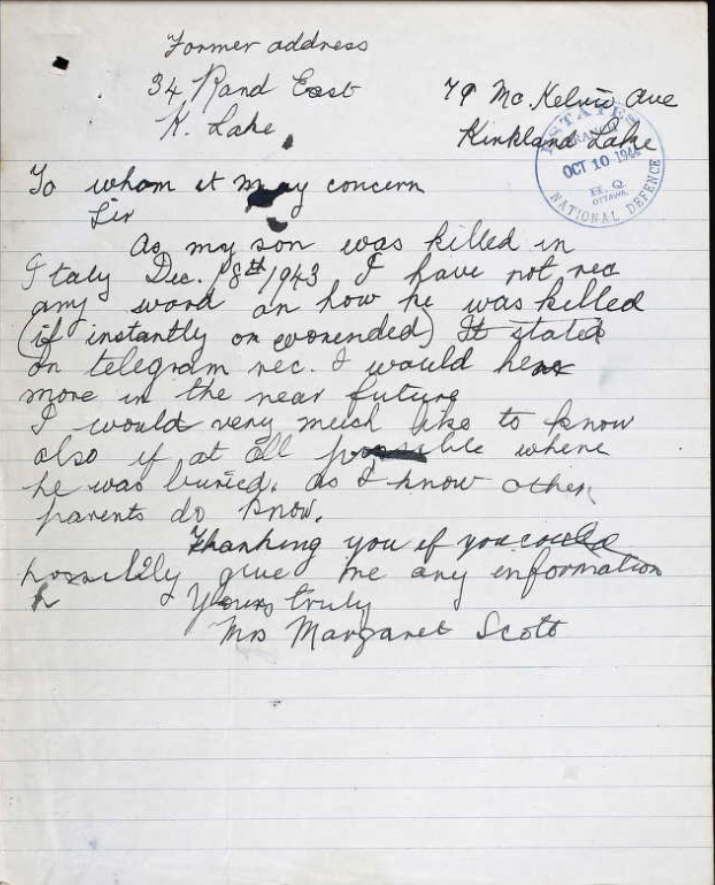 Former address
34 Rand East
K. Lake
79 Mc. Kelvie Ave
Kinkland Lake
ESTATES
BRANCH
OCT 10 1944
H. Q.
OTTAWA
NATIONAL DEFENCE
To whom it may concern
Sir
As my son was killed in
Italy Dec. 18th/1943 I have not rec
any word on how he was killed
(if instantly or wounded) It stated
on telegram rec. I would hear
more in the near future
I would very much like to know
also if at all possible where
he was buried. as I know other
parents do know.
Thanking you if you could
possibily give me any information
Yours truly
Mrs Margaret Scott